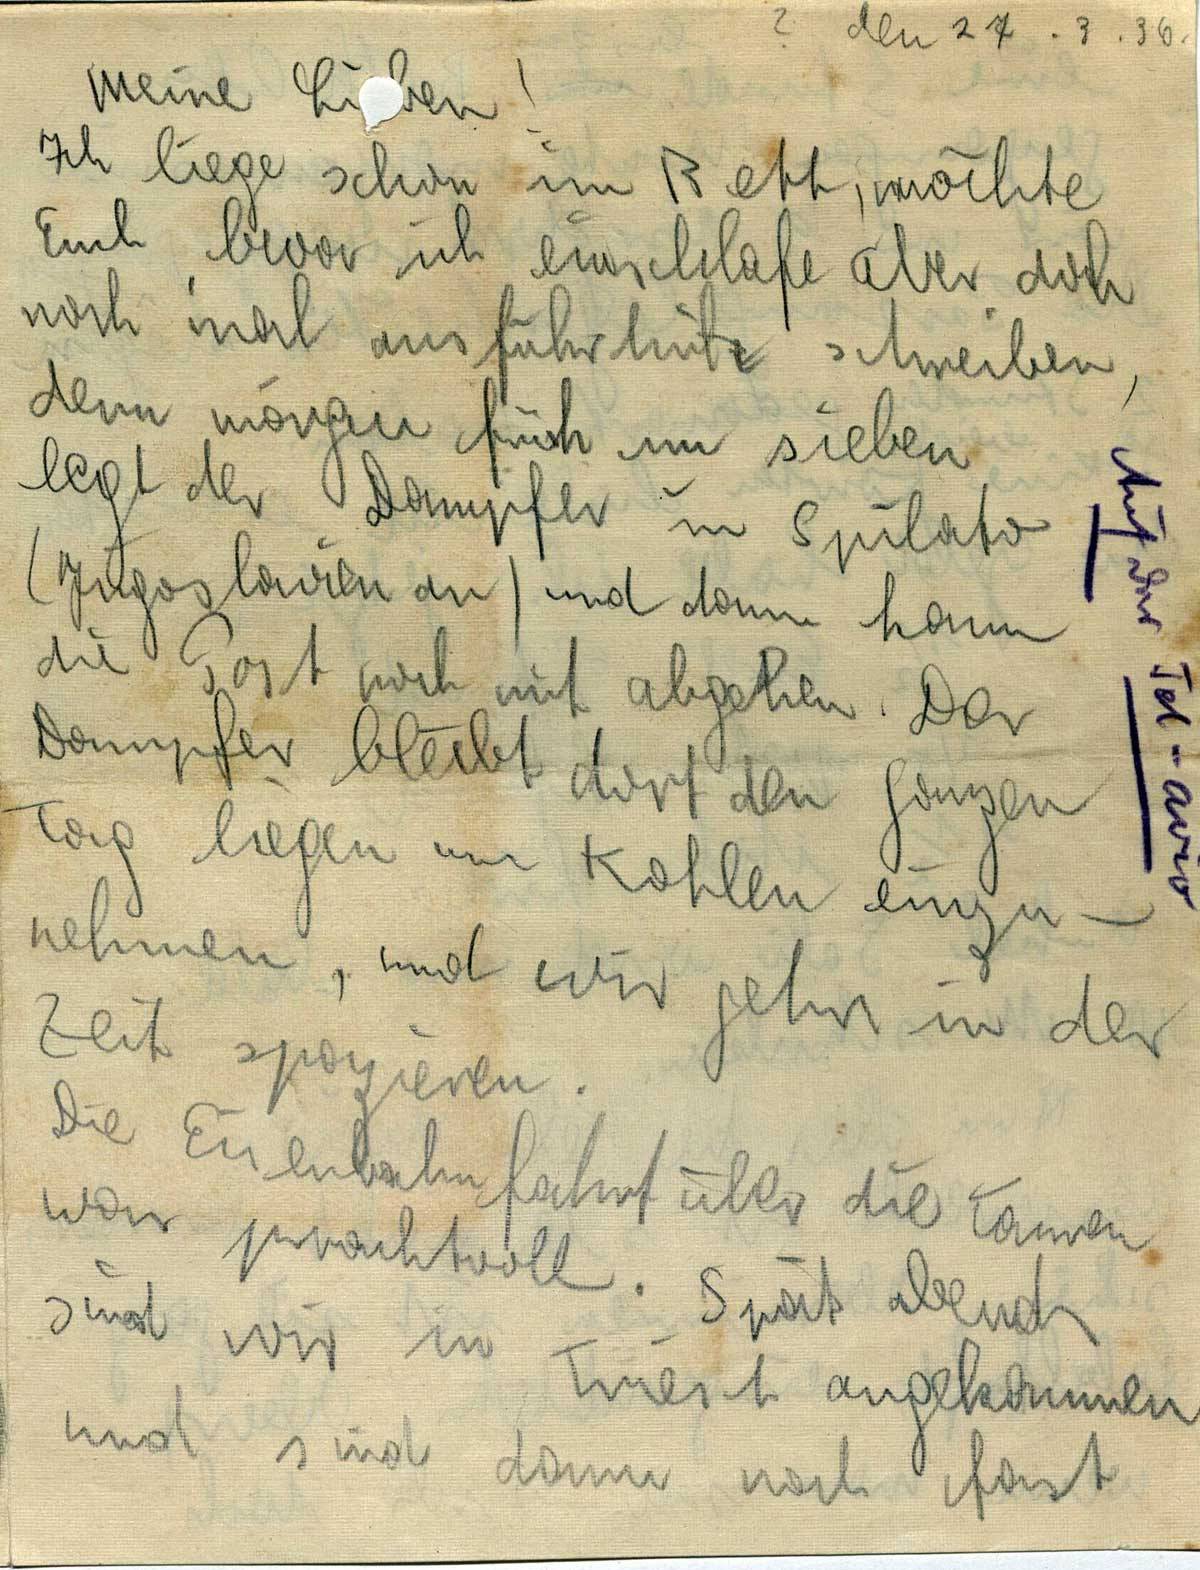 ? den 27.3.36.
Meine Lieben!
Ich liege schon im Bett, möchte
Euch, bevor ich einschlafe aber doch
noch mal ausführlich schreiben,
denn morgen früh um sieben
legt der Dampfer in Spalato
(Jugoslavien an) und dann kann
die Post noch mit abgehen. Der
Dampfer bleibt dort den ganzen
Tag liegen um Kohlen einzu-
nehmen, und wir gehn in der
Zeit spazieren.
Die Eisenbahnfahrt über die Tauern
war prachtvoll. Spät abends
sind wir in Triest angekommen
und sind dann noch fast
Auf der Tel-aviv